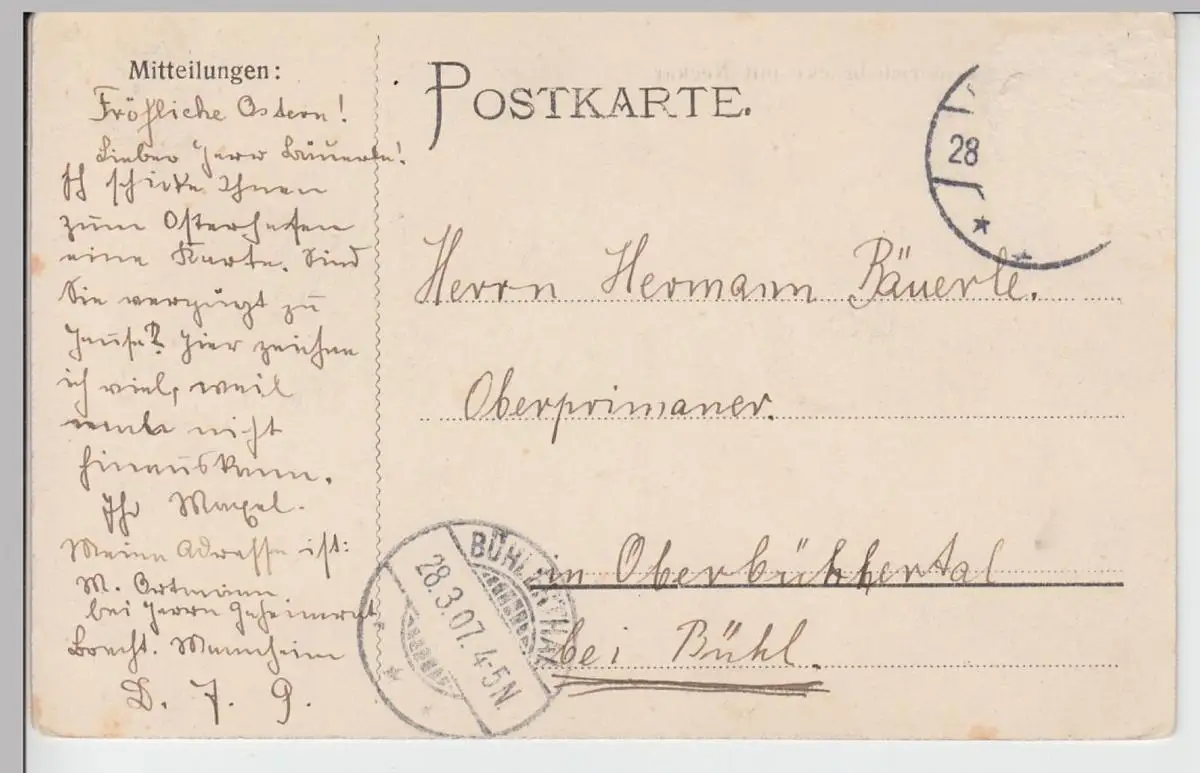 Mitteilungen:
Fröhliche Ostern!
Lieber Herr Bäuerle!
Ich schicke Ihnen
zum Osterhasen
eine Karte. Sind
Sie vergnügt zu
Hause? Hier zeichne
ich viel, weil
nicht
hinauskann.
Ihr Maxel.
Meine Adresse ist:
M. Ortmann
bei Herrn Geheimrat
Brecht. Mannheim
D. 7. 9.
POSTKARTE.
28
Herrn Hermann Bäuerle.
Oberprimaner.
in Oberbühlertal
bei Bühl.
BÜHLERTHAL
28.3.07. 4-5N.